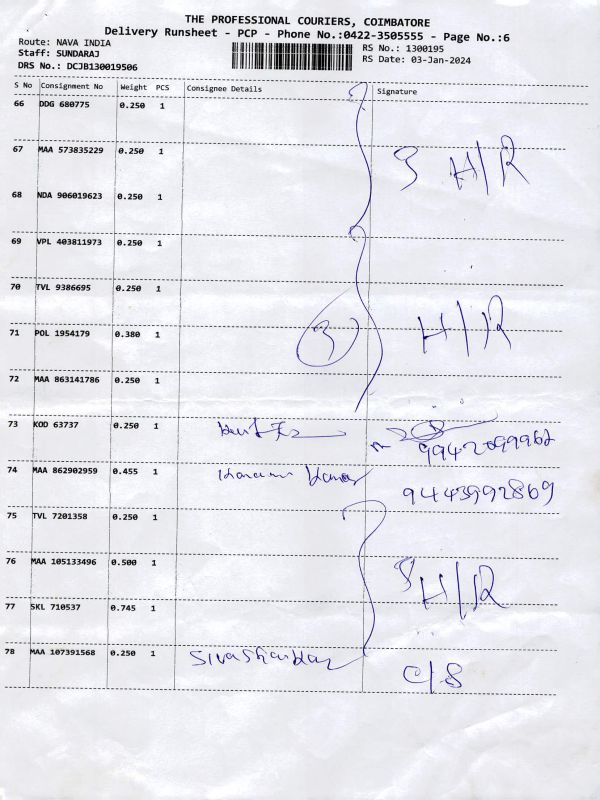 THE PROFESSIONAL COURIERS, COIMBATORE
Delivery Runsheet - PCP - Phone No.:0422-3505555 - Page No.:6
Route: NAVA INDIA
RS No.: 1300195
Staff: SUNDARAJ
RS Date: 03-Jan-2024
DRS No.: DCJB130019506
S No Consignment No Weight PCS Consignee Details Signature
66 DDG 680775 0.250 1
67 MAA 573835229 0.250 1 3 H/R
68 NDA 906019623 0.250 1
69 VPL 403811973 0.250 1
70 TVL 9386695 0.250 1
71 POL 1954179 0.380 1 3 H/R
72 MAA 863141786 0.250 1
73 KOD 63737 0.250 1
74 MAA 862902959 0.455 1 9443992869
75 TVL 7201358 0.250 1
76 MAA 105133496 0.500 1 H/R
77 SKL 710537 0.745 1
78 MAA 107391568 0.250 1 Sivashankar C/S